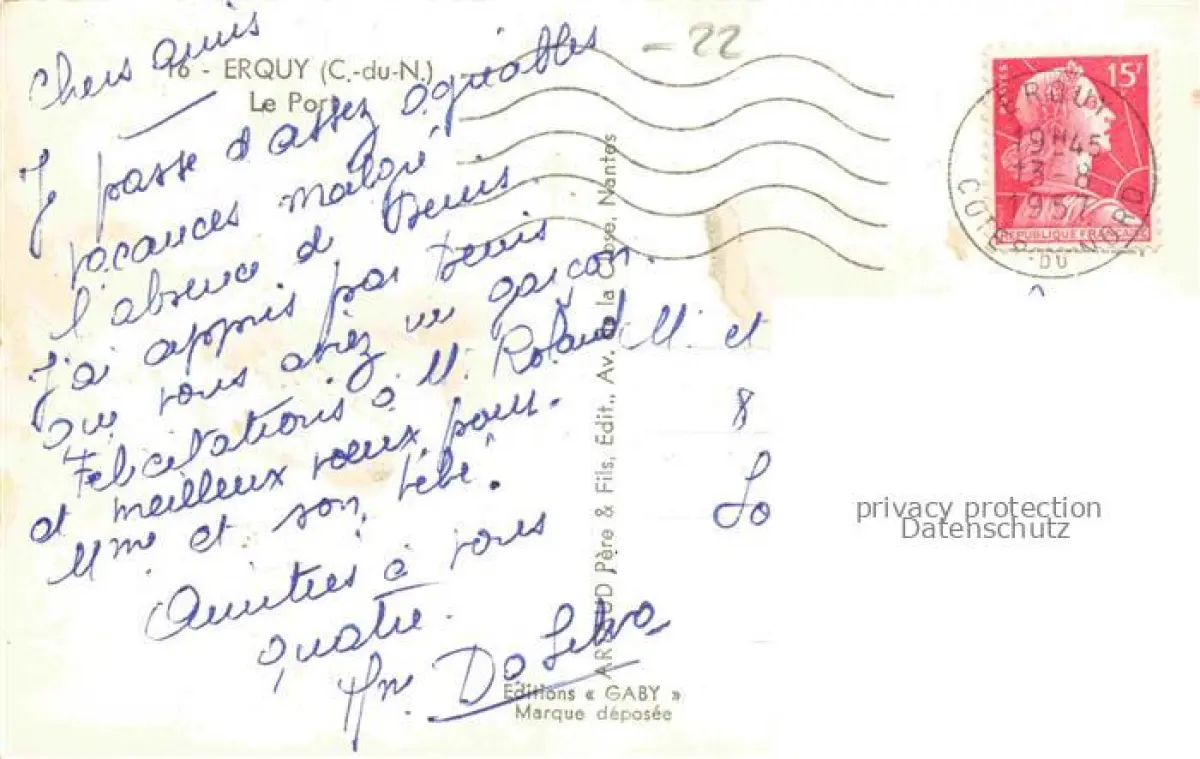 Chers amis
16 - ERQUY (C.-du-N.)
Le Port
Je passe d'assez agréables
vacances malgré
l'absence de Denis.
J'ai appris par Denis
que vous aviez un garçon.
Félicitations à M. Roland
et meilleux voeux pour
Mme et son bébé.
Amitiés à vous
quatre.
Da Silva
Editions « GABY »
Marque déposée
ARTAUD Père & Fils, Edit., Av. de la Close, Nantes
- 22
POSTES
15F
REPUBLIQUE FRANÇAISE
ERQUY
19H45
13-8
1957
COTES-DU-NORD
M. et
8
Lo
privacy protection
Datenschutz